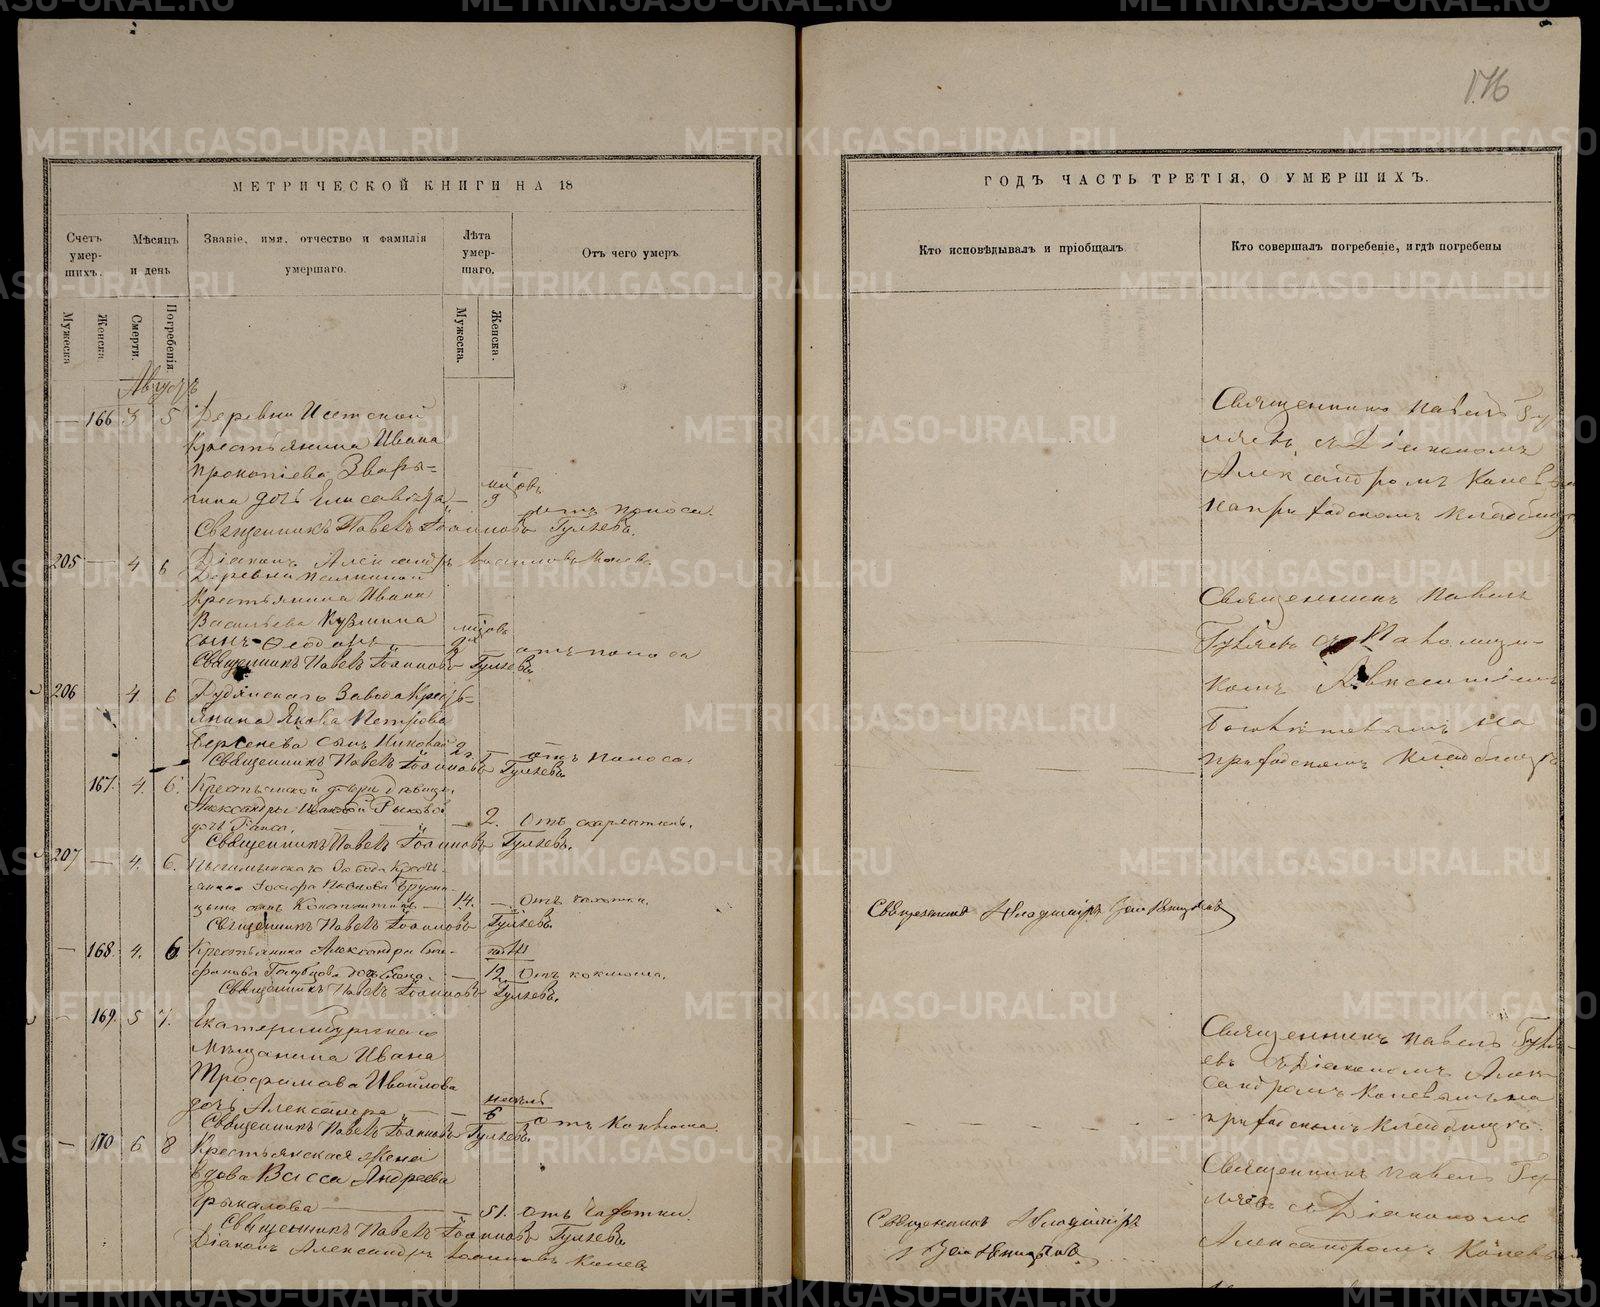 176
МЕТРИЧЕСКОЙ КНИГИ НА 18
Счетъ умер- шихъ.
Мѣсяцъ и день
Званіе, имя, отчество и фамилія умершаго.
Лѣта умер- шаго.
Отъ чего умеръ.
Мужеска
Женска
Смерти.
Погребенія.
Мужеска.
Женска.
Августъ
166 3 5 Деревни Исетской
Крестьянина Ивана
Прокопіева Звѣры-
гина дочь Елисавета
Священникъ Павелъ Іоанновъ Гуляевъ.
9
отъ поноса
205 4 6 Діаконъ Александръ Іоанновъ Коневъ
Деревни Палкиной
Крестьянина Ивана
Васильева Кузмина
сынъ Ѳеодоръ
отъ поноса
Священникъ Павелъ Іоанновъ Гуляевъ
206 4 6 Завода Кресть-
янина Якова Петрова
Берсенева сынъ Николай 2 г. отъ поноса
Священникъ Павелъ Іоанновъ Гуляевъ
167. 4. 6. Крестьянской дочери дѣвицы
Александры
дочь 2. Отъ скарлатины.
Священникъ Павелъ Іоанновъ Гуляевъ.
207 4. 6. Завода Кресть-
янина Павлова Брусни-
цына сынъ Константинъ 14. Отъ чахотки.
Священникъ Павелъ Іоанновъ Гуляевъ.
168. 4. 6 Крестьянина Александра Сте-
фанова Голубцова дочь Елена. 12. Отъ коклюша.
Священникъ Павелъ Іоанновъ Гуляевъ.
169. 5 7. Екатеринбургскаго
Мѣщанина Ивана
Трофимова Ивойлова
дочь Александра
недѣль
6
отъ Коклюша
Священникъ Павелъ Іоанновъ Гуляевъ.
170 6 8 Крестьянская жена
вдова Васса Андреева
51. отъ Чахотки.
Священникъ Павелъ Іоанновъ Гуляевъ
Діаконъ Александръ Іоанновъ Коневъ
ГОДЪ ЧАСТЬ ТРЕТІЯ, О УМЕРШИХЪ.
Кто исповѣдывалъ и пріобщалъ.
Кто совершалъ погребеніе, и гдѣ погребены
Священникъ Павелъ Гу-
ляевъ съ Діакономъ
Александромъ Коневымъ
на приходскомъ кладбищѣ
Священникъ Павелъ
Гуляевъ съ Паломщи-
комъ
на
приходскомъ кладбищѣ
Священникъ Владиміръ
Священникъ Павелъ Гуля-
евъ съ Діакономъ Алек-
сандромъ Коневымъ на
приходскомъ кладбищѣ.
Священникъ Владиміръ
Священникъ Павелъ Гу-
ляевъ съ Діакономъ
Александромъ Коневымъ
METRIKI.GASO-URAL.RU